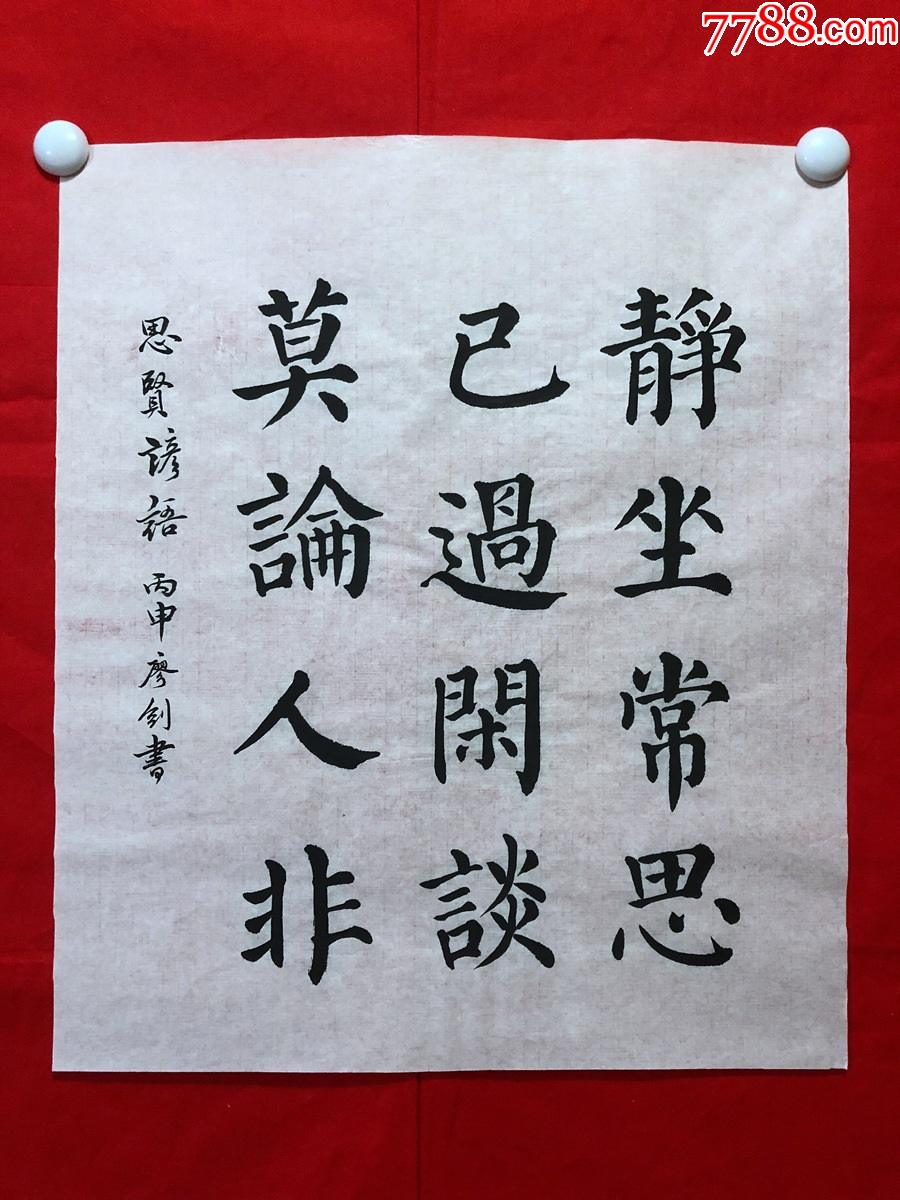 7788.com
靜坐常思
己過閑談
莫論人非
思賢諺語 丙申廖剑書